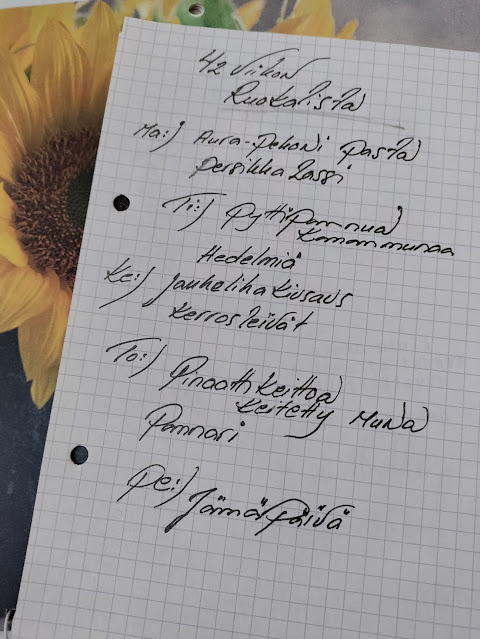 42 Viikon
Ruokalista
Ma:) Aura-pekoni pasta
persikka lassi
Ti:) pyttipannua
Kananmunaa
Hedelmiä
Ke:) Jauheliha kiusaus
kerrosleivät
To:) Pinaattikeittoa
keitetty muna
Pannari
Pe:) Jämäpäivä